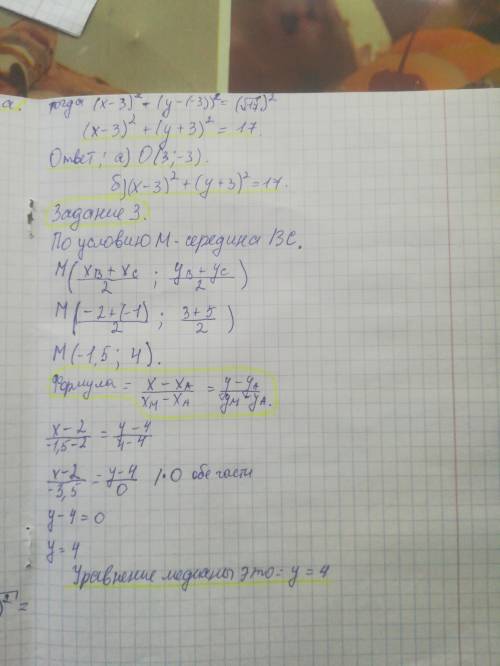 а. тогда (x-3)² + (y-(-3))² = (√17)²
(x-3)² + (y+3)² = 17.
Ответ: а) O(3;-3).
б) (x-3)² + (y+3)² = 17.
Задание 3.
По условию M - середина BC.
M( (xB + xC)/2 ; (yB + yC)/2 )
M( (-2+(-1))/2 ; (3+5)/2 )
M(-1,5; 4).
Формула = (x - xA)/(xM - xA) = (y - yA)/(yM - yA).
(x-2)/(-1,5-2) = (y-4)/(4-4)
(x-2)/(-3,5) = (y-4)/0 | · 0 обе части
y-4=0
y=4
Уравнение медианы это: y = 4